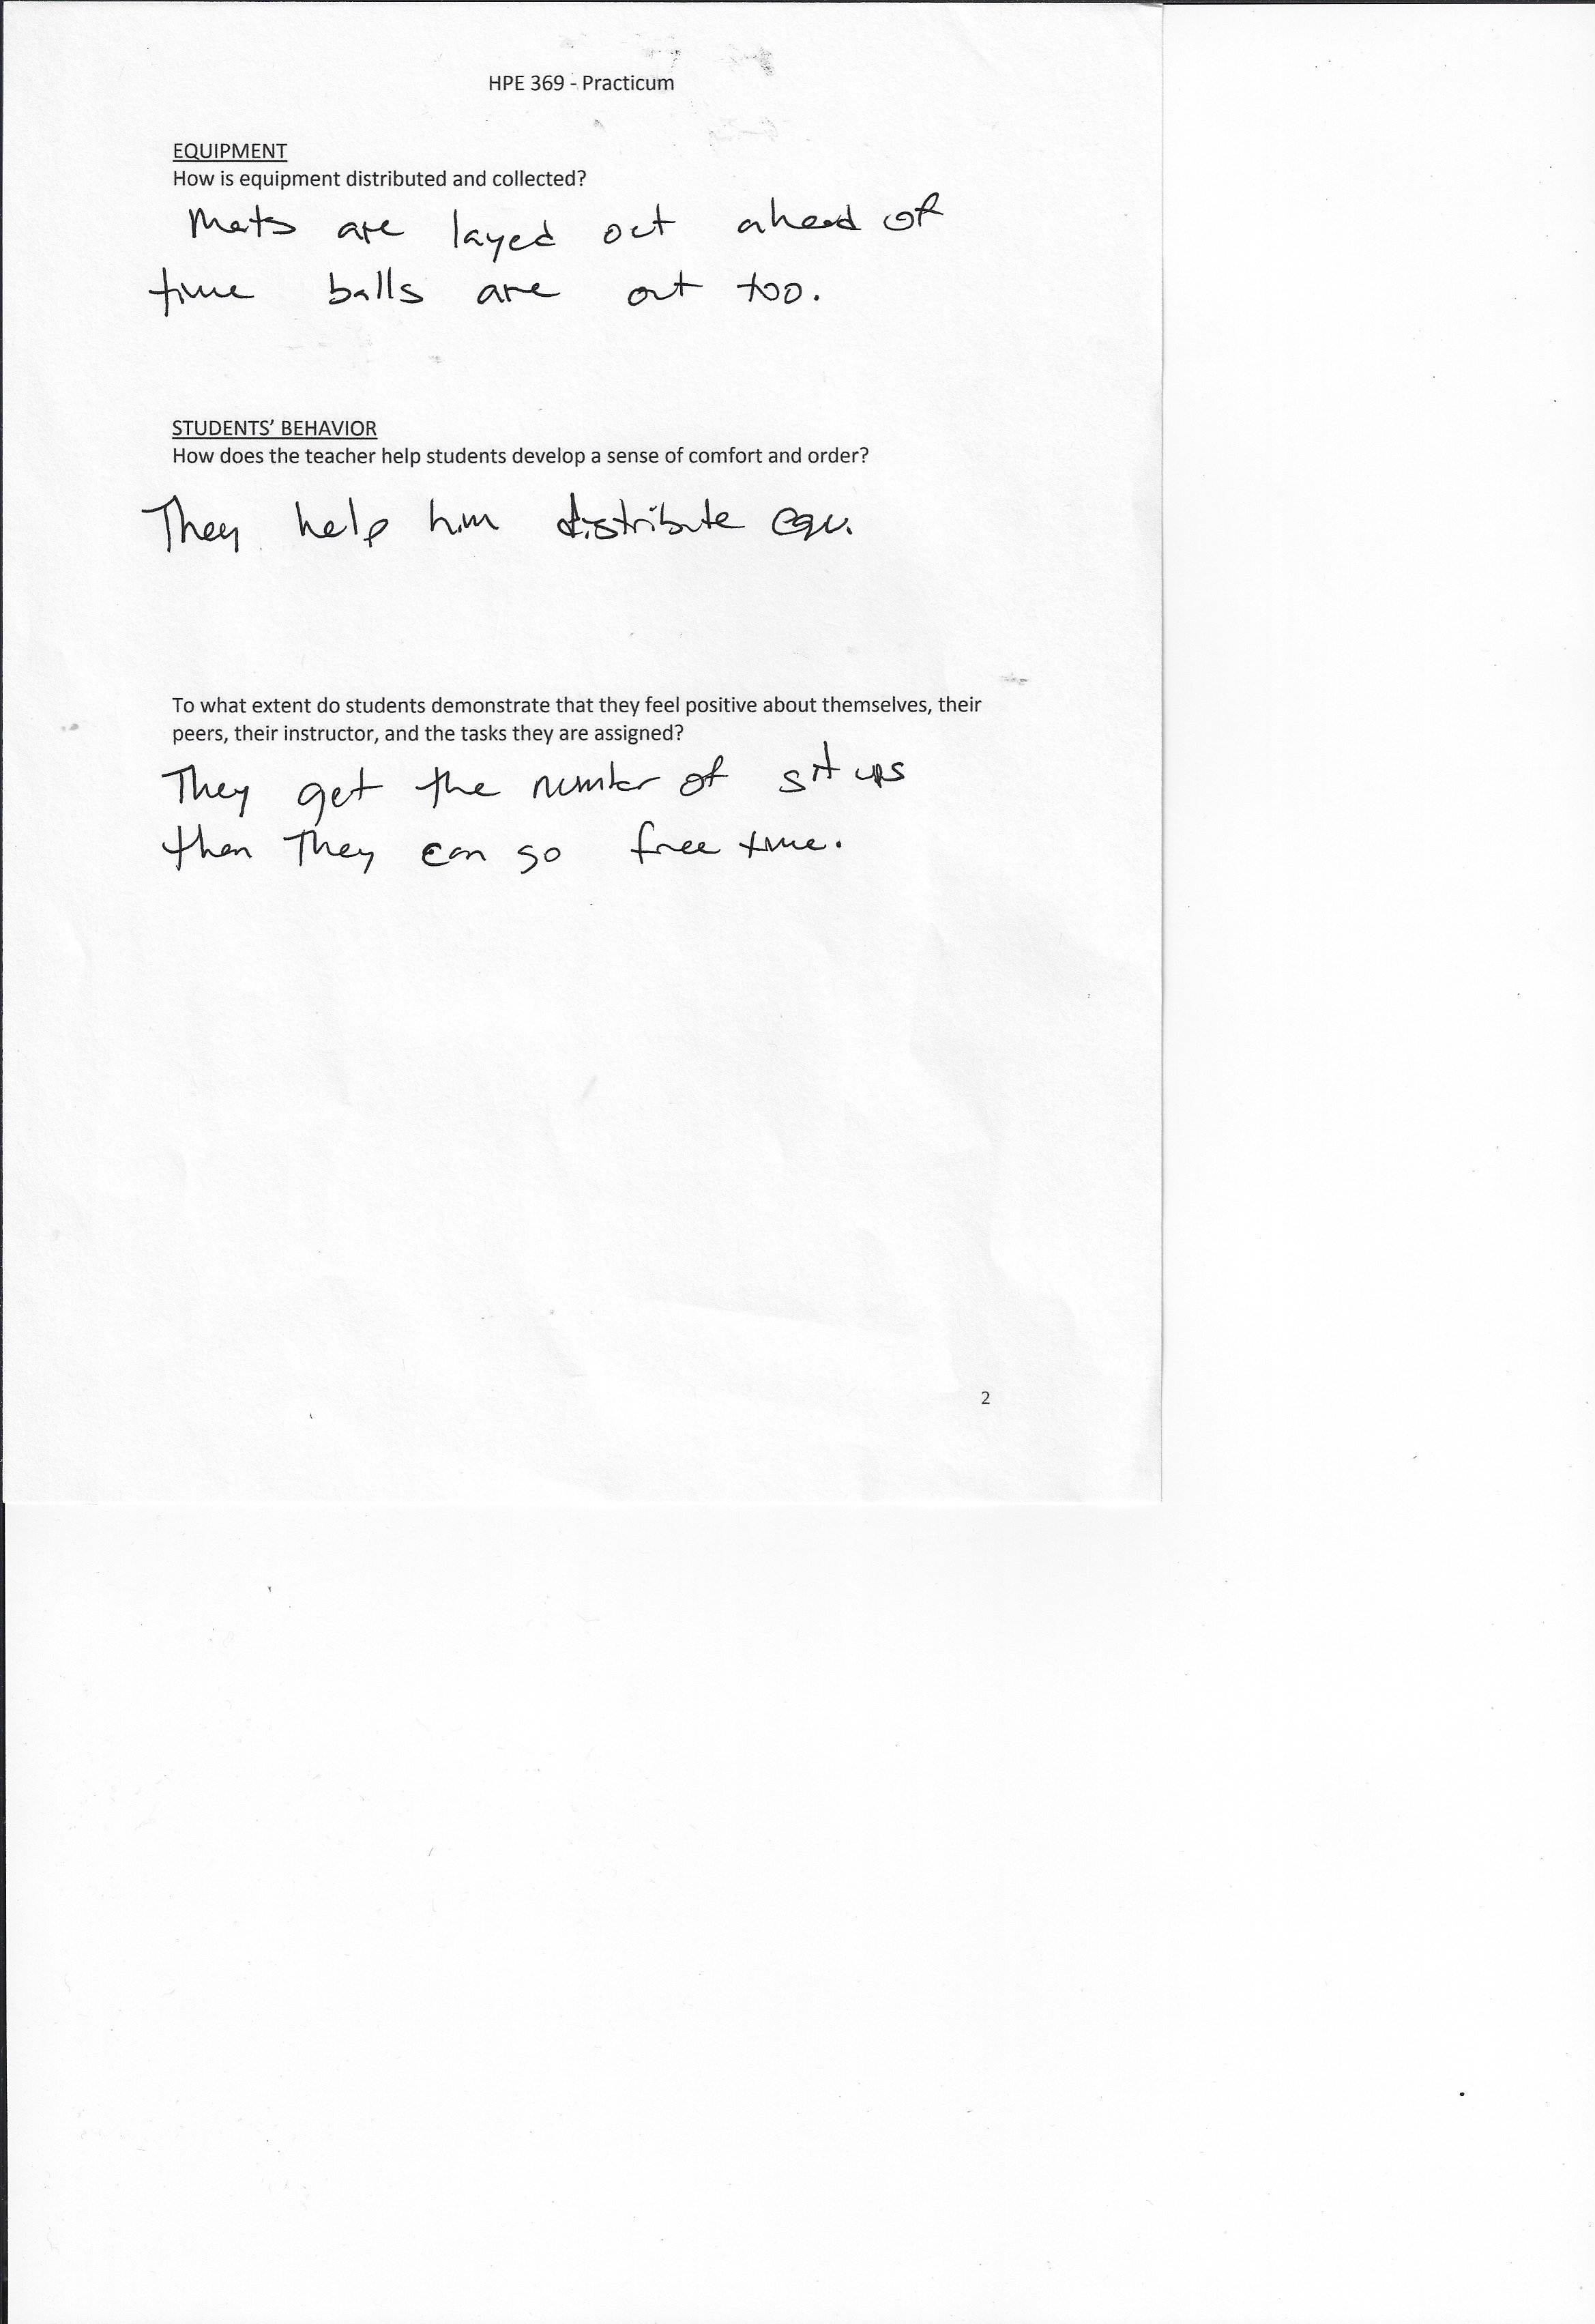 HPE 369 - Practicum
EQUIPMENT
How is equipment distributed and collected?
Mats are layed out ahead of
time balls are out too.
STUDENTS' BEHAVIOR
How does the teacher help students develop a sense of comfort and order?
They help him distribute equ.
To what extent do students demonstrate that they feel positive about themselves, their
peers, their instructor, and the tasks they are assigned?
They get the number of sit ups
then they can go free time.
2